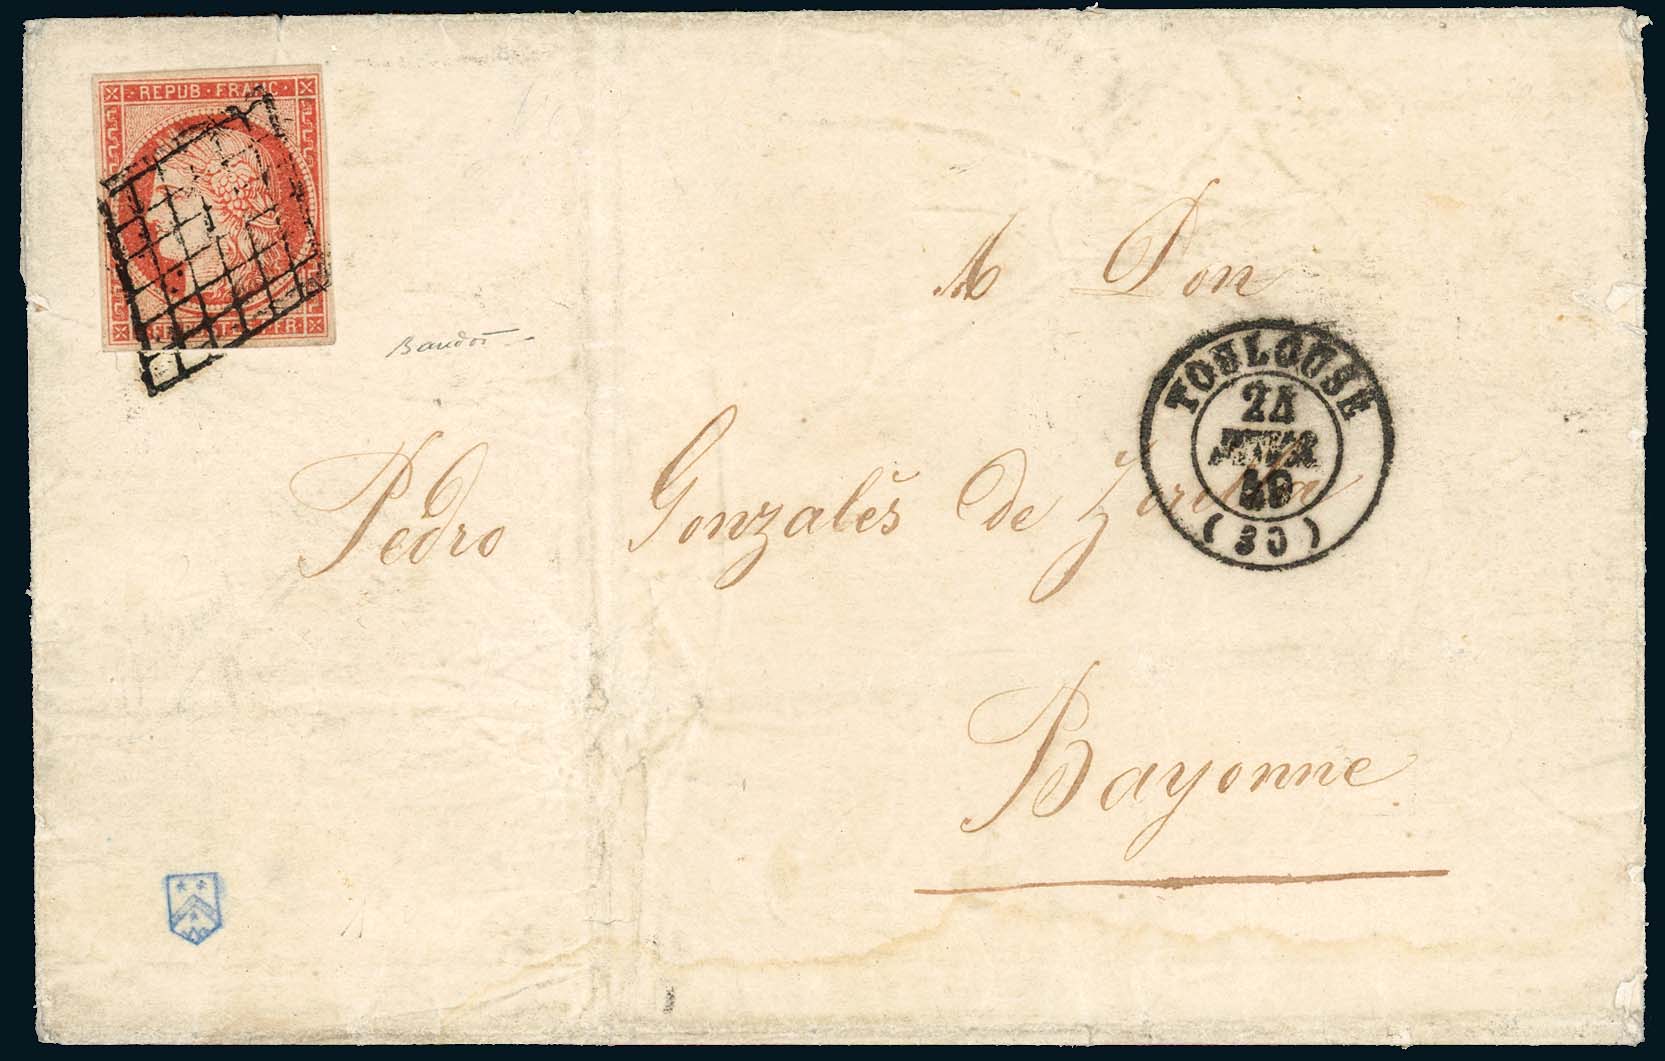 REPUB · FRANC ·
1 FR
Baudot
M Don
TOULOUSE
24
49
(30)
Pedro Gonzalès de Zorilla
Bayonne